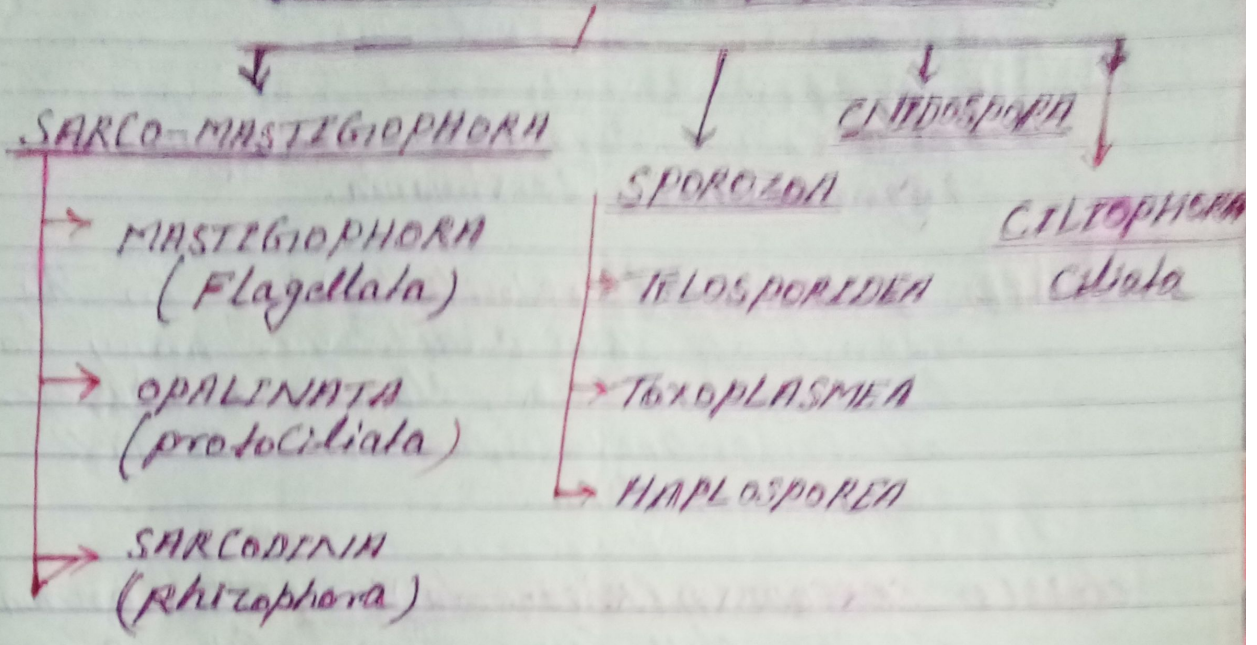 SARCO-MASTIGIOPHORA
MASTIGIOPHORA
(Flagellata)
OPALINATA
(protociliata)
SARCODINIA
(Rhizophora)
SPOROZOA
TELOSPORIDEA
TOXOPLASMEA
HAPLOSPOREA
CNIDOSPORA
CILIOPHORA
Ciliata